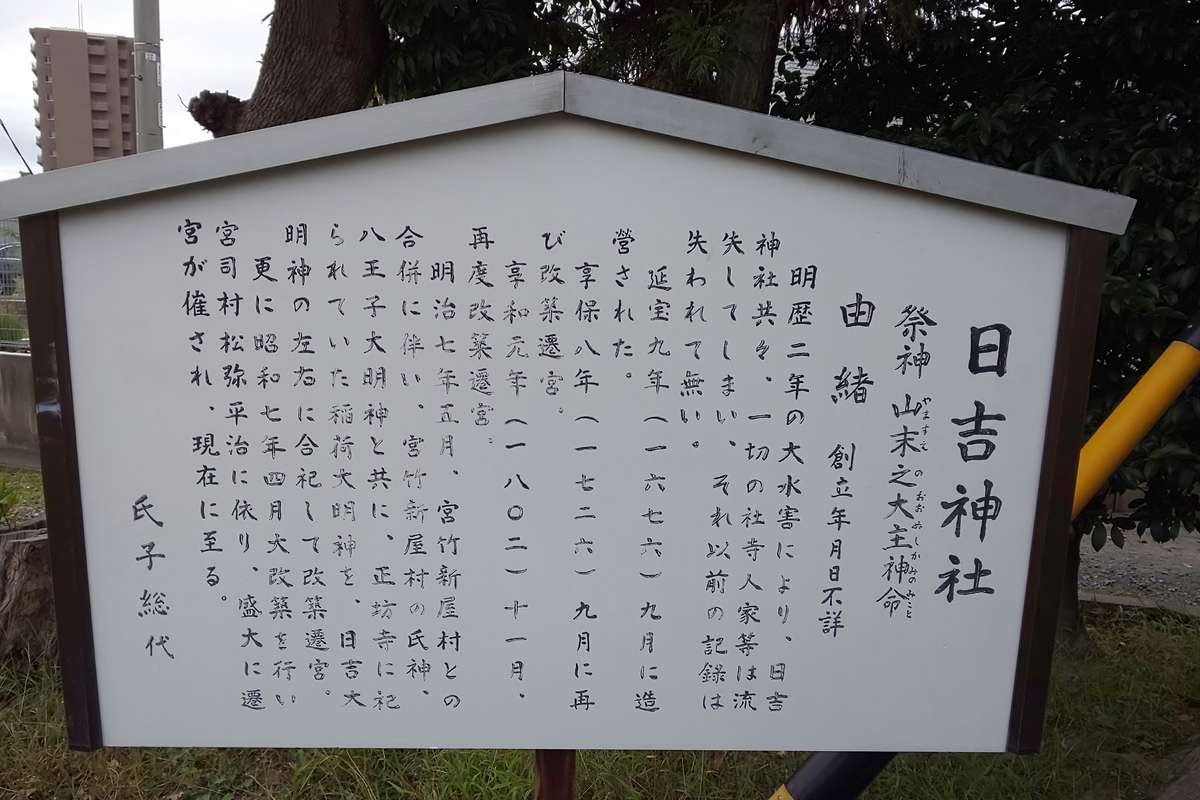 日吉神社
祭神 山末之大主神命
やますえ の おおぬしかみの みこと
由緒 創立年月日不詳
明歴二年の大水害により、日吉
神社共々、一切の社寺人家等は流
失してしまい、それ以前の記録は
失われて無い。
延宝九年(一六七六)九月に造
営された。
享保八年(一七二六)九月に再
び改築遷宮。
享和元年(一八〇二)十一月、
再度改築遷宮。
明治七年正月、宮竹新屋村との
合併に伴い、宮竹新屋村の氏神、
八王子大明神と共に、正坊寺に祀
られていた稲荷大明神を、日吉大
明神の左右に合祀して改築遷宮。
更に昭和七年四月大改築を行い
宮司村松弥平治に依り、盛大に遷
宮が催され、現在に至る。
氏子総代